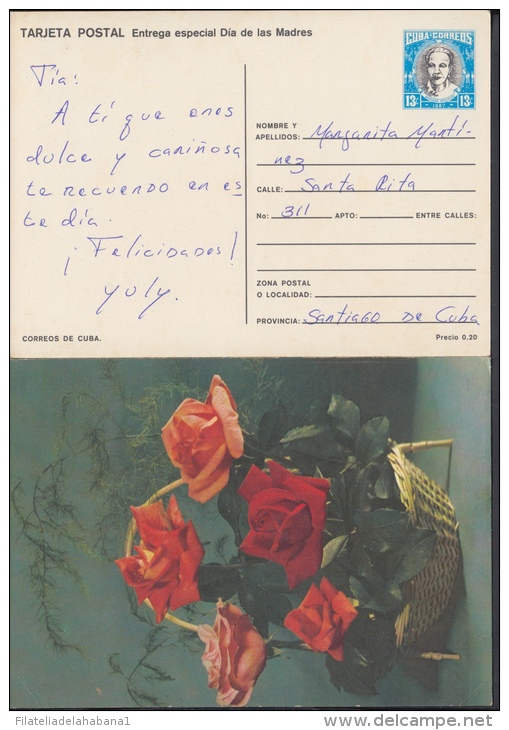 TARJETA POSTAL Entrega especial Día de las Madres
CUBA·CORREOS
13¢ 1987 13¢
Tía:
A tí que eres
dulce y cariñosa
te recuerdo en es
te día.
¡Felicidades!
Yuly.
NOMBRE Y
APELLIDOS: Margarita Martí-
nez
CALLE: Santa Rita
No: 311 APTO: ENTRE CALLES:
ZONA POSTAL
O LOCALIDAD:
PROVINCIA: Santiago de Cuba
CORREOS DE CUBA.
Precio 0.20
Filateliadelahabana1
www.delcampe.net